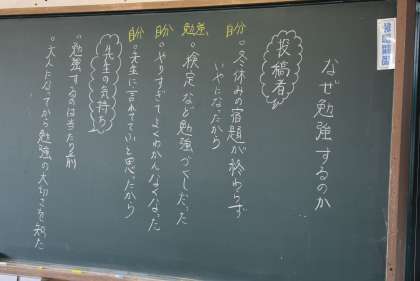 なぜ勉強するのか
投稿者
自分
・冬休みの宿題が終わらず
いやになったから
勉強、
・検定など勉強づくしだった
自分
・やりすぎてよくわかんなくなった
自分
・先生に言われていいと思ったから
先生の気持ち
・勉強するのは当たり前
・大人になってから勉強の大切さを知った